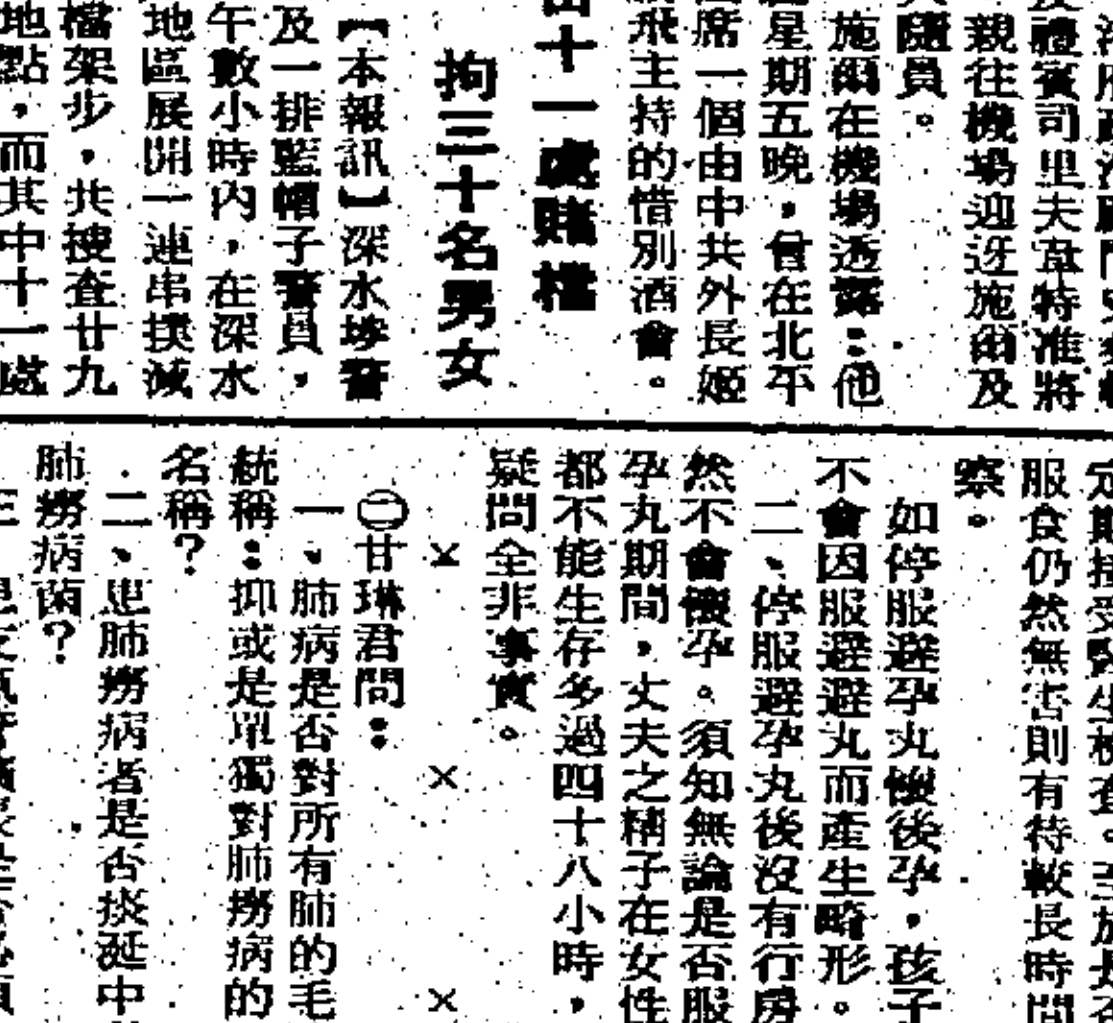 禮賓司里夫韋特准將
親往機場迎迓施爾及
隨員。
施爾在機場透露：他
星期五晚，曾在北平
席一個由中共外長姬
飛主持的惜別酒會。
十一處賭檔
拘三十名男女
【本報訊】深水埗警
及一排藍帽子警員，
午數小時內，在深水
地區展開一連串撲滅
檔架步，共搜查廿九
地點，而其中十一處
服食仍然無害則有待較長時間
察。
如停服避孕丸懷後孕，孩子
不會因服避避丸而產生畸形。
二、停服避孕丸後沒有行房
然不會懷孕。須知無論是否服
孕丸期間，丈夫之精子在女性
都不能生存多過四十八小時，
疑問全非事實。
× × ×
㊁甘琳君問：
一、肺病是否對所有肺的毛
統稱：抑或是單獨對肺癆病的
名稱？
二、患肺癆病者是否痰涎中
肺癆病菌？